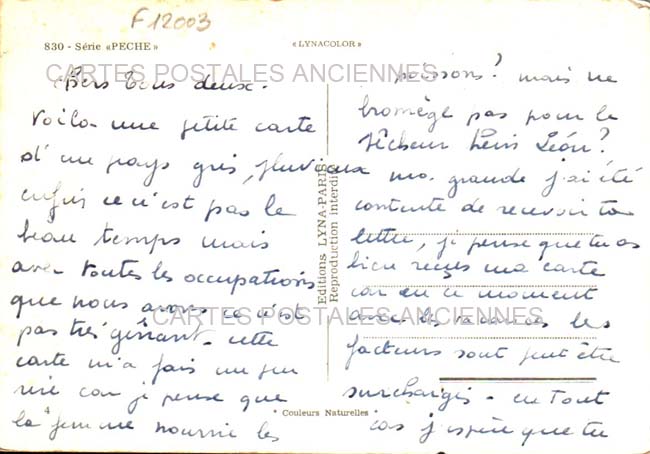 F12003
830 - Série «PECHE»
«LYNACOLOR»
CARTES POSTALES ANCIENNES
Chers tous deux.
Voilà une petite carte
d'un pays gris, pluvieux
enfin ce n'est pas le
beau temps mais
avec toutes les occupations
que nous avons ce n'est
pas très gênant. cette
carte m'a fais un peu
rire car je pense que
la femme nourrie les
4
Editions LYNA-PARIS
Reproduction interdite
poissons? mais ne
pas pour le
pêcheur Léon?
ma grande j'ai été
contente de recevoir ta
lettre, je pense que tu as
bien reçus ma carte
car en ce moment
avec les vacances les
facteurs sont peut être
surchargés - en tout
cas j'espère que tu
CARTES POSTALES ANCIENNES
* Couleurs Naturelles *